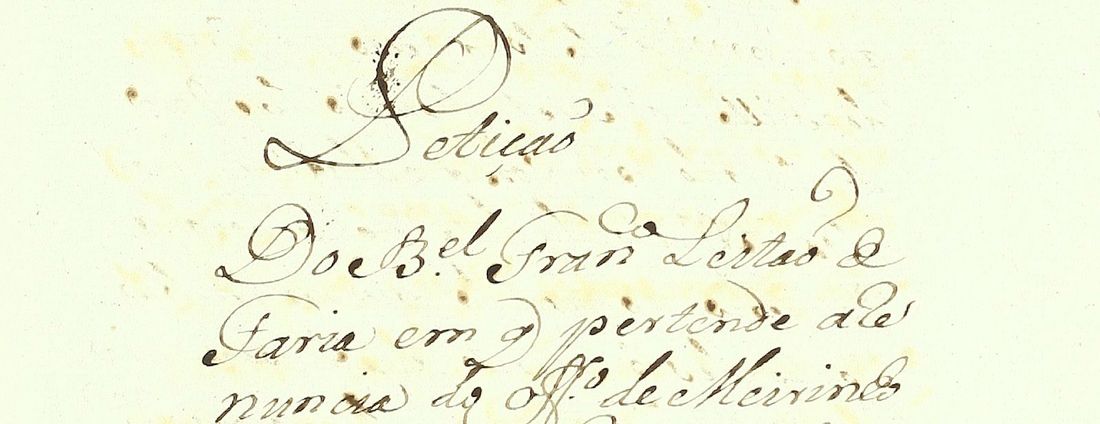 Petição
Do B.el Franco Leitaõ de
Faria em q pertende a Re
nuncia do offo. de Meirinho